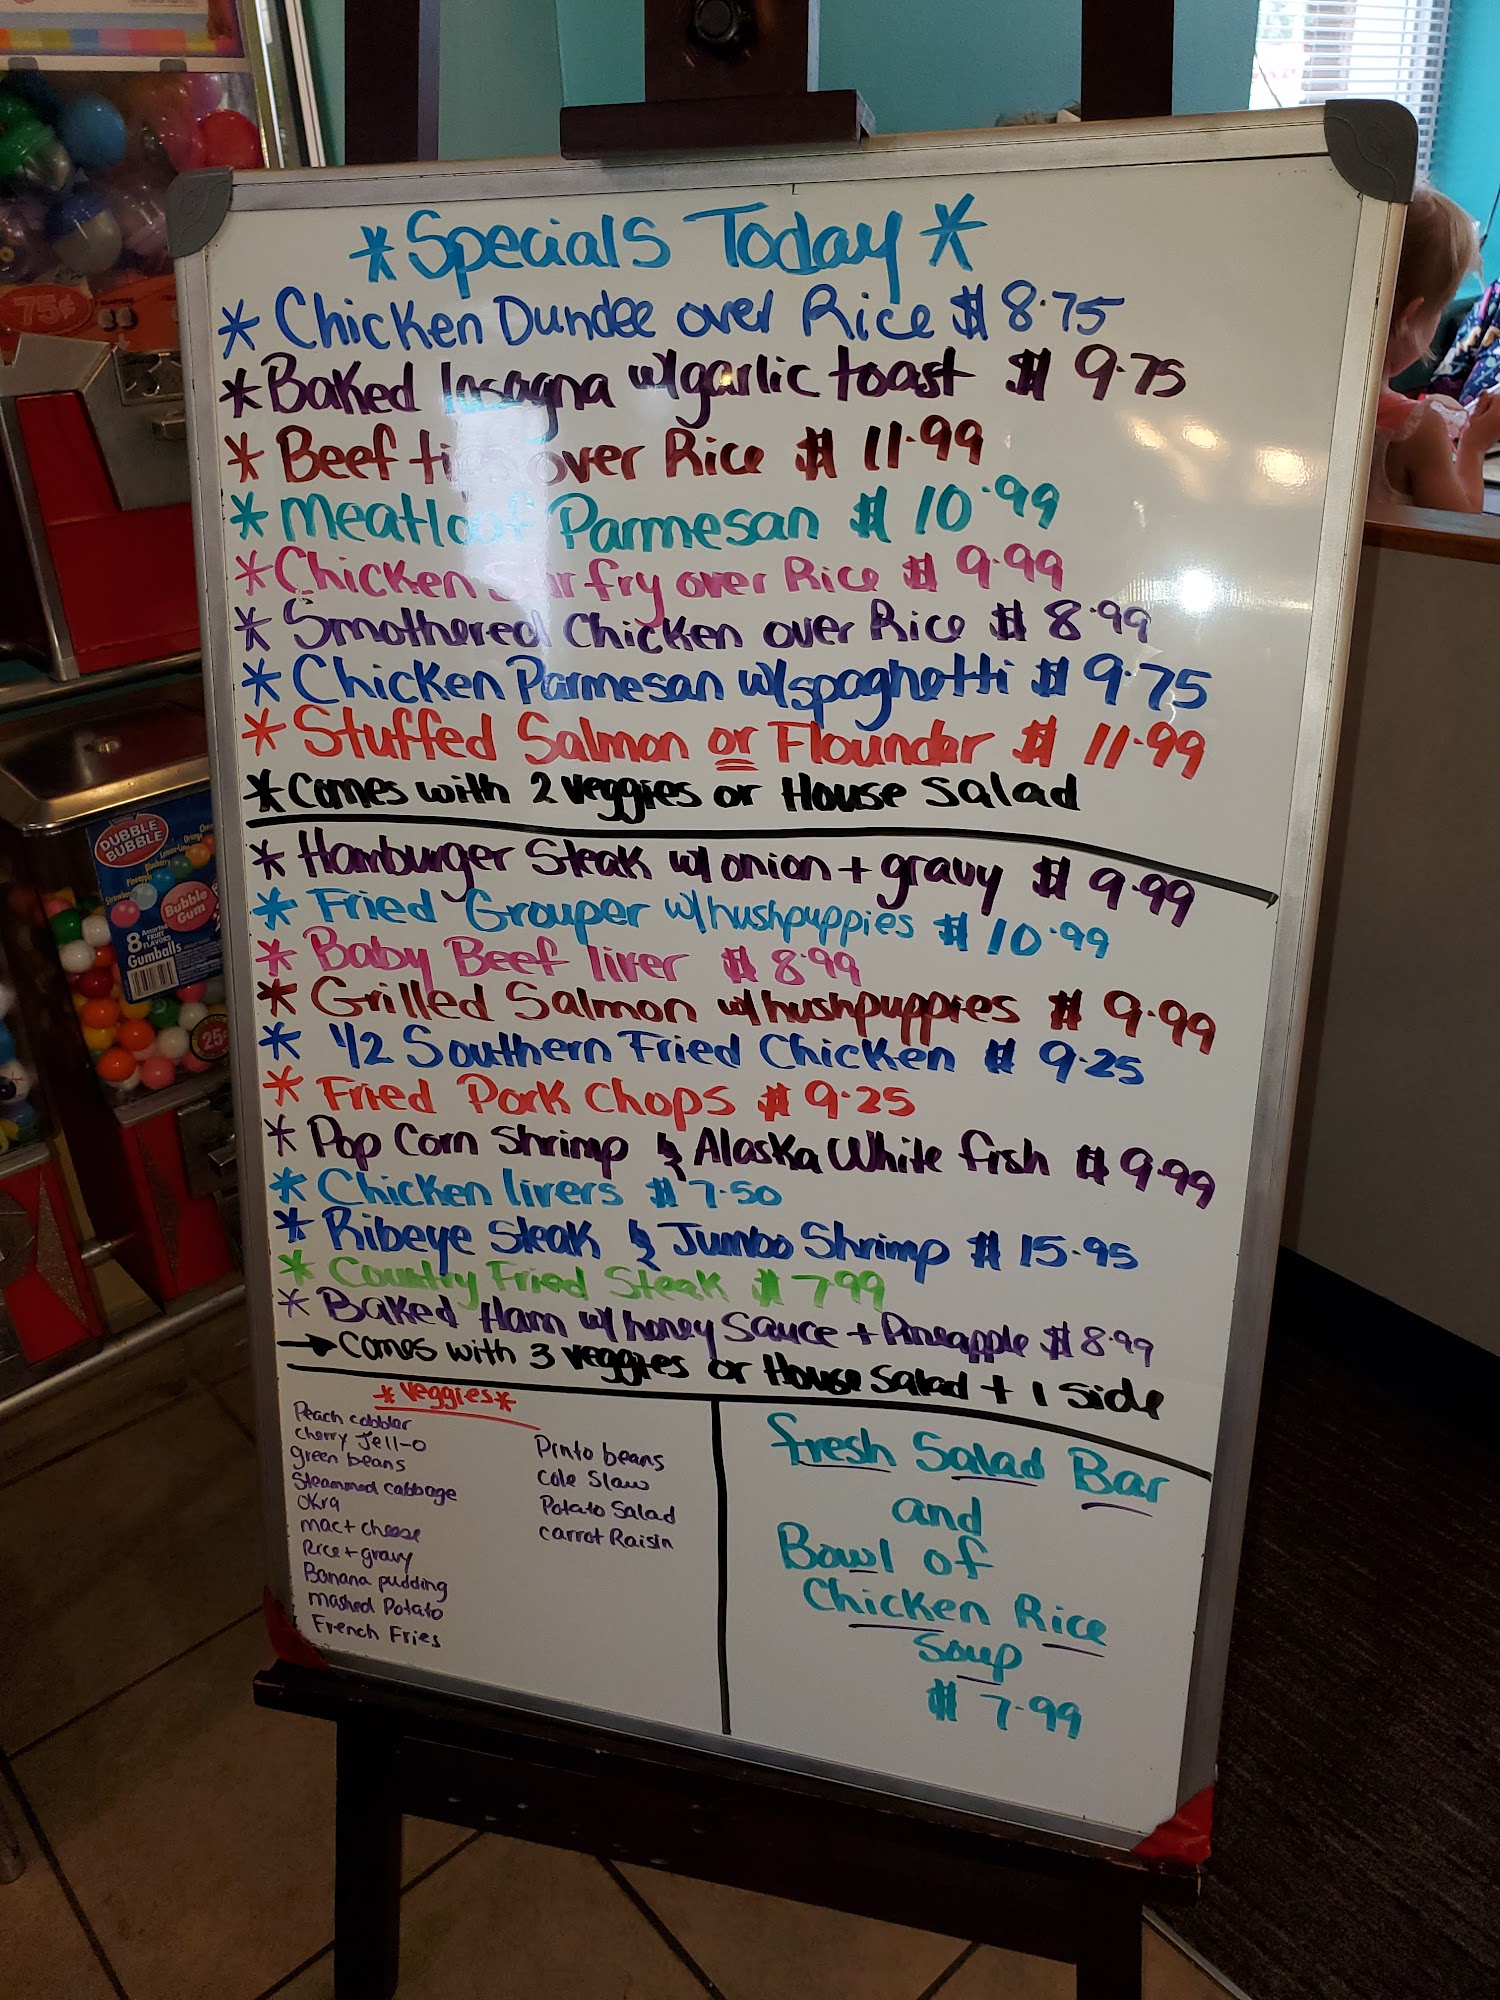 *Specials Today*
* Chicken Dundee over Rice $ 8.75
* Baked lasagna w/garlic toast $ 9.75
* Beef tips over Rice $ 11.99
* Meatloaf Parmesan $ 10.99
* Chicken Stir fry over Rice $ 9.99
* Smothered Chicken over Rice $ 8.99
* Chicken Parmesan w/spaghetti $ 9.75
* Stuffed Salmon or Flounder $ 11.99
* Comes with 2 veggies or House Salad
* Hamburger Steak w/ onion + gravy $ 9.99
* Fried Grouper w/hushpuppies $ 10.99
* Baby Beef liver $ 8.99
* Grilled Salmon w/hushpuppies $ 9.99
* 1/2 Southern Fried Chicken $ 9.25
* Fried Pork Chops $ 9.25
* Pop Corn Shrimp & Alaska White fish $ 9.99
* Chicken livers $ 7.50
* Ribeye Steak & Jumbo Shrimp $ 15.95
* Country Fried Steak $ 7.99
* Baked Ham w/ honey Sauce + Pineapple $ 8.99
→ Comes with 3 veggies or House Salad + 1 side
*Veggies*
Peach cobbler
cherry Jell-o
green beans
Steammed cabbage
Okra
mac + cheese
Rice + gravy
Banana pudding
mashed Potato
French Fries
Pinto beans
Cole Slaw
Potato Salad
carrot Raisin
fresh Salad Bar
and
Bowl of
Chicken Rice
Soup
$ 7.99
75¢
DUBBLE
BUBBLE
Bubble
Gum
8 Assorted
FRUIT
FLAVORS
Gumballs
25¢